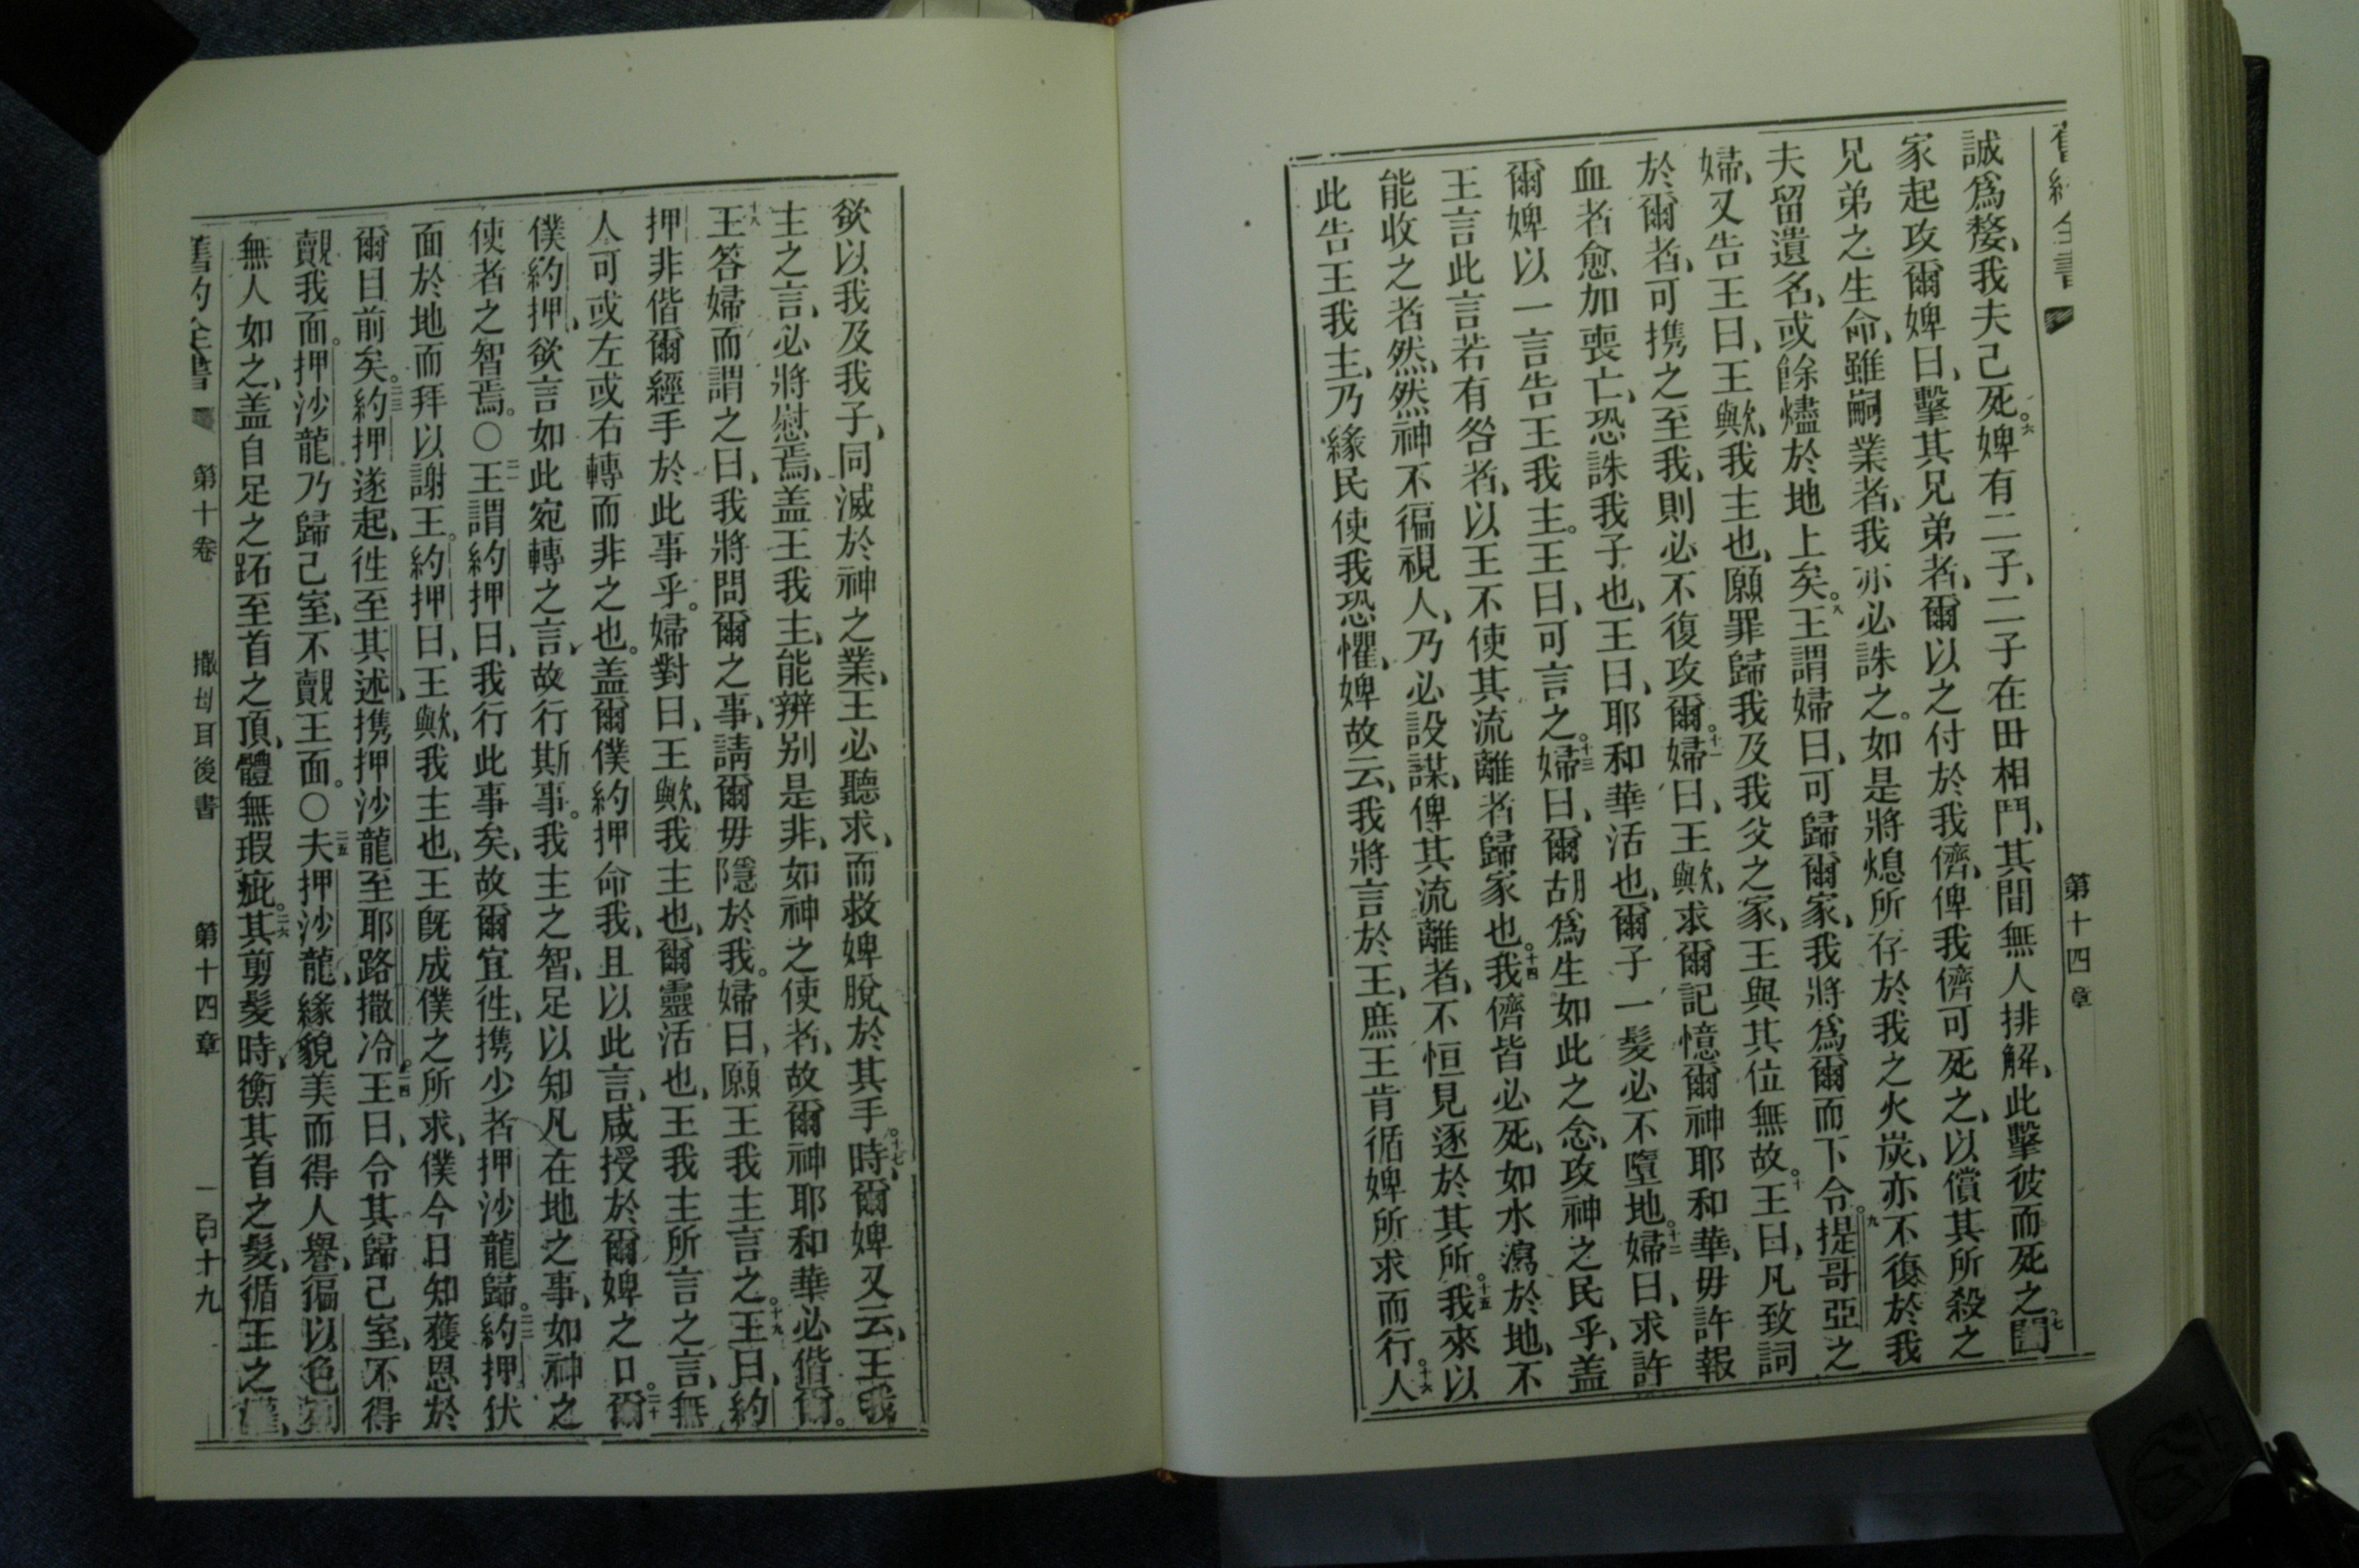 舊約全書
第十四章
誠爲嫠、我夫己死。六婢有二子、二子在田相鬥、其間無人排解、此擊彼而死之。七闔
家起攻爾婢曰、擊其兄弟者、爾以之付於我儕、俾我儕可死之、以償其所殺之
兄弟之生命、雖嗣業者、我亦必誅之。如是將熄所存於我之火炭、亦不復於我
夫留遺名、或餘燼於地上矣。八王謂婦曰、可歸爾家、我將爲爾而下令。九提哥亞之
婦、又告王曰、王歟、我主也、願罪歸我及我父之家、王與其位無故。十王曰、凡致詞
於爾者、可携之至我、則必不復攻爾。十一婦曰、王歟、求爾記憶爾神耶和華、毋許報
血者愈加喪亡、恐誅我子也、王曰、耶和華活也、爾子一髮必不墮地。十二婦曰、求許
爾婢以一言告王我主。王曰、可言之。十三婦曰、爾胡爲生如此之念、攻神之民乎、盖
王言此言若有咎者、以王不使其流離者歸家也。十四我儕皆必死、如水瀉於地、不
能收之者然、然神不徧視人、乃必設謀、俾其流離者、不恒見逐於其所。十五我來以
此告王我主、乃緣民使我恐懼、婢故云、我將言於王、庶王肯循婢所求而行。十六人
欲以我及我子、同滅於神之業、王必聽求、而救婢脫於其手。十七時、爾婢又云、王我
主之言、必將慰焉、盖王我主、能辨别是非、如神之使者、故爾神耶和華必偕爾。
十八王答婦而謂之曰、我將問爾之事、請爾毋隱於我。婦曰、願王我主言之。十九王曰、約
押非偕爾經手於此事乎。婦對曰、王歟、我主也、爾靈活也、王我主所言之言、無
人可或左或右轉而非之也。盖爾僕約押命我、且以此言、咸授於爾婢之口。二十爾
僕約押、欲言如此宛轉之言、故行斯事。我主之智、足以知凡在地之事、如神之
使者之智焉。〇二一王謂約押曰、我行此事矣、故爾宜徃、携少者押沙龍歸。二二約押伏
面於地而拜以謝王。約押曰、王歟、我主也、王旣成僕之所求、僕今日知獲恩於
爾目前矣。二三約押遂起、徃至其述、携押沙龍至耶路撒冷。二四王曰、令其歸己室、不得
覿我面。押沙龍乃歸己室、不覿王面。〇二五夫押沙龍、緣貌美而得人譽、徧以色列
無人如之、盖自足之跖至首之頂、體無瑕疵。二六其剪髮時、衡其首之髮、循王之權、
舊約全書 第十卷 撒母耳後書 第十四章 一百十九